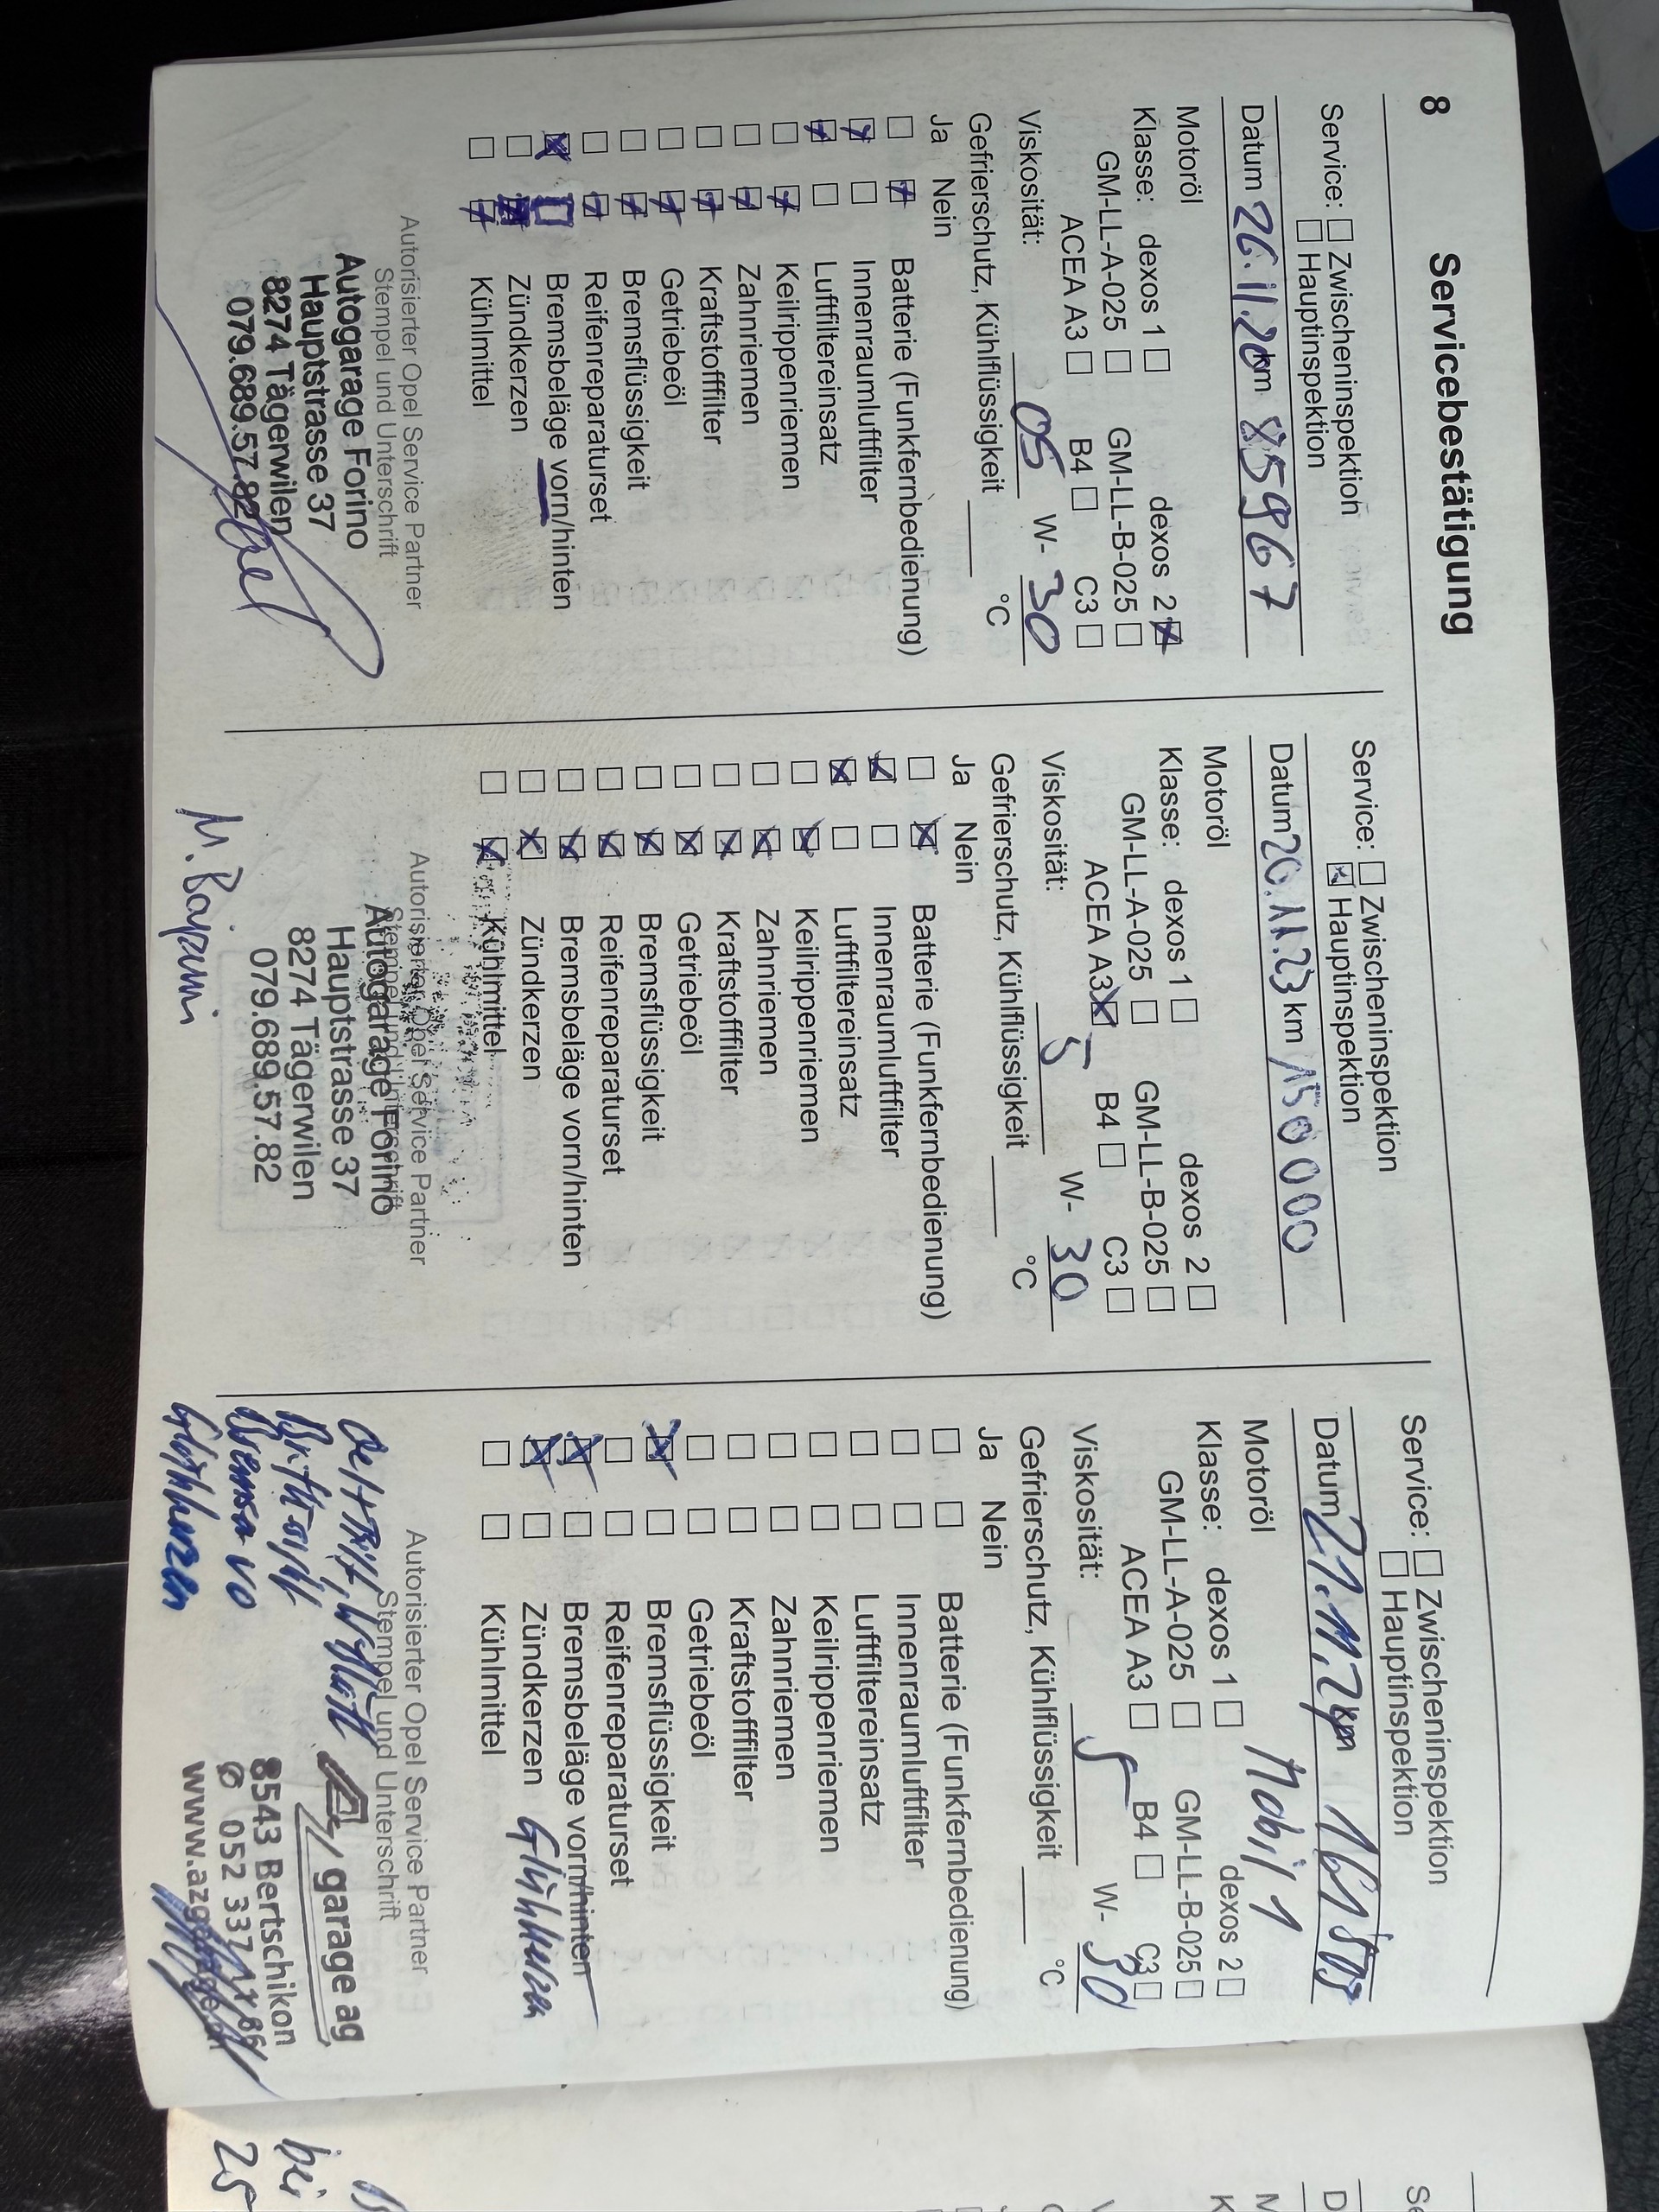 8
Servicebestätigung
Service: Zwischeninspektion
Hauptinspektion
Datum 26.11.20 km 85967
Motoröl
Klasse: dexos 1 dexos 2
GM-LL-A-025 GM-LL-B-025
ACEA A3 B4 C3
Viskosität: 05 W- 30
Gefrierschutz, Kühlflüssigkeit °C
Ja Nein
Batterie (Funkfernbedienung)
Innenraumluftfilter
Luftfiltereinsatz
Keilrippenriemen
Zahnriemen
Kraftstofffilter
Getriebeöl
Bremsflüssigkeit
Reifenreparaturset
Bremsbeläge vorn/hinten
Zündkerzen
Kühlmittel
Autorisierter Opel Service Partner
Stempel und Unterschrift
Autogarage Forino
Hauptstrasse 37
8274 Tägerwilen
079.689.57.82
Service: Zwischeninspektion
Hauptinspektion
Datum 20.11.23 km 150000
Motoröl
Klasse: dexos 1 dexos 2
GM-LL-A-025 GM-LL-B-025
ACEA A3 B4 C3
Viskosität: 5 W- 30
Gefrierschutz, Kühlflüssigkeit °C
Ja Nein
Batterie (Funkfernbedienung)
Innenraumluftfilter
Luftfiltereinsatz
Keilrippenriemen
Zahnriemen
Kraftstofffilter
Getriebeöl
Bremsflüssigkeit
Reifenreparaturset
Bremsbeläge vorn/hinten
Zündkerzen
Kühlmittel
Autorisierter Opel Service Partner
Stempel und Unterschrift
Autogarage Forino
Hauptstrasse 37
8274 Tägerwilen
079.689.57.82
M. Bayram
Service: Zwischeninspektion
Hauptinspektion
Datum 21.11.24 km
Motoröl Mobil 1
Klasse: dexos 1 dexos 2
GM-LL-A-025 GM-LL-B-025
ACEA A3 B4 C3
Viskosität: 5 W- 30
Gefrierschutz, Kühlflüssigkeit °C
Ja Nein
Batterie (Funkfernbedienung)
Innenraumluftfilter
Luftfiltereinsatz
Keilrippenriemen
Zahnriemen
Kraftstofffilter
Getriebeöl
Bremsflüssigkeit
Reifenreparaturset
Bremsbeläge vorn/hinten
Zündkerzen Glühkerzen
Kühlmittel
Autorisierter Opel Service Partner
Stempel und Unterschrift
garage ag
8543 Bertschikon
052 337
Bremsen vo
www.azgarage
Glühkerzen
bei
25